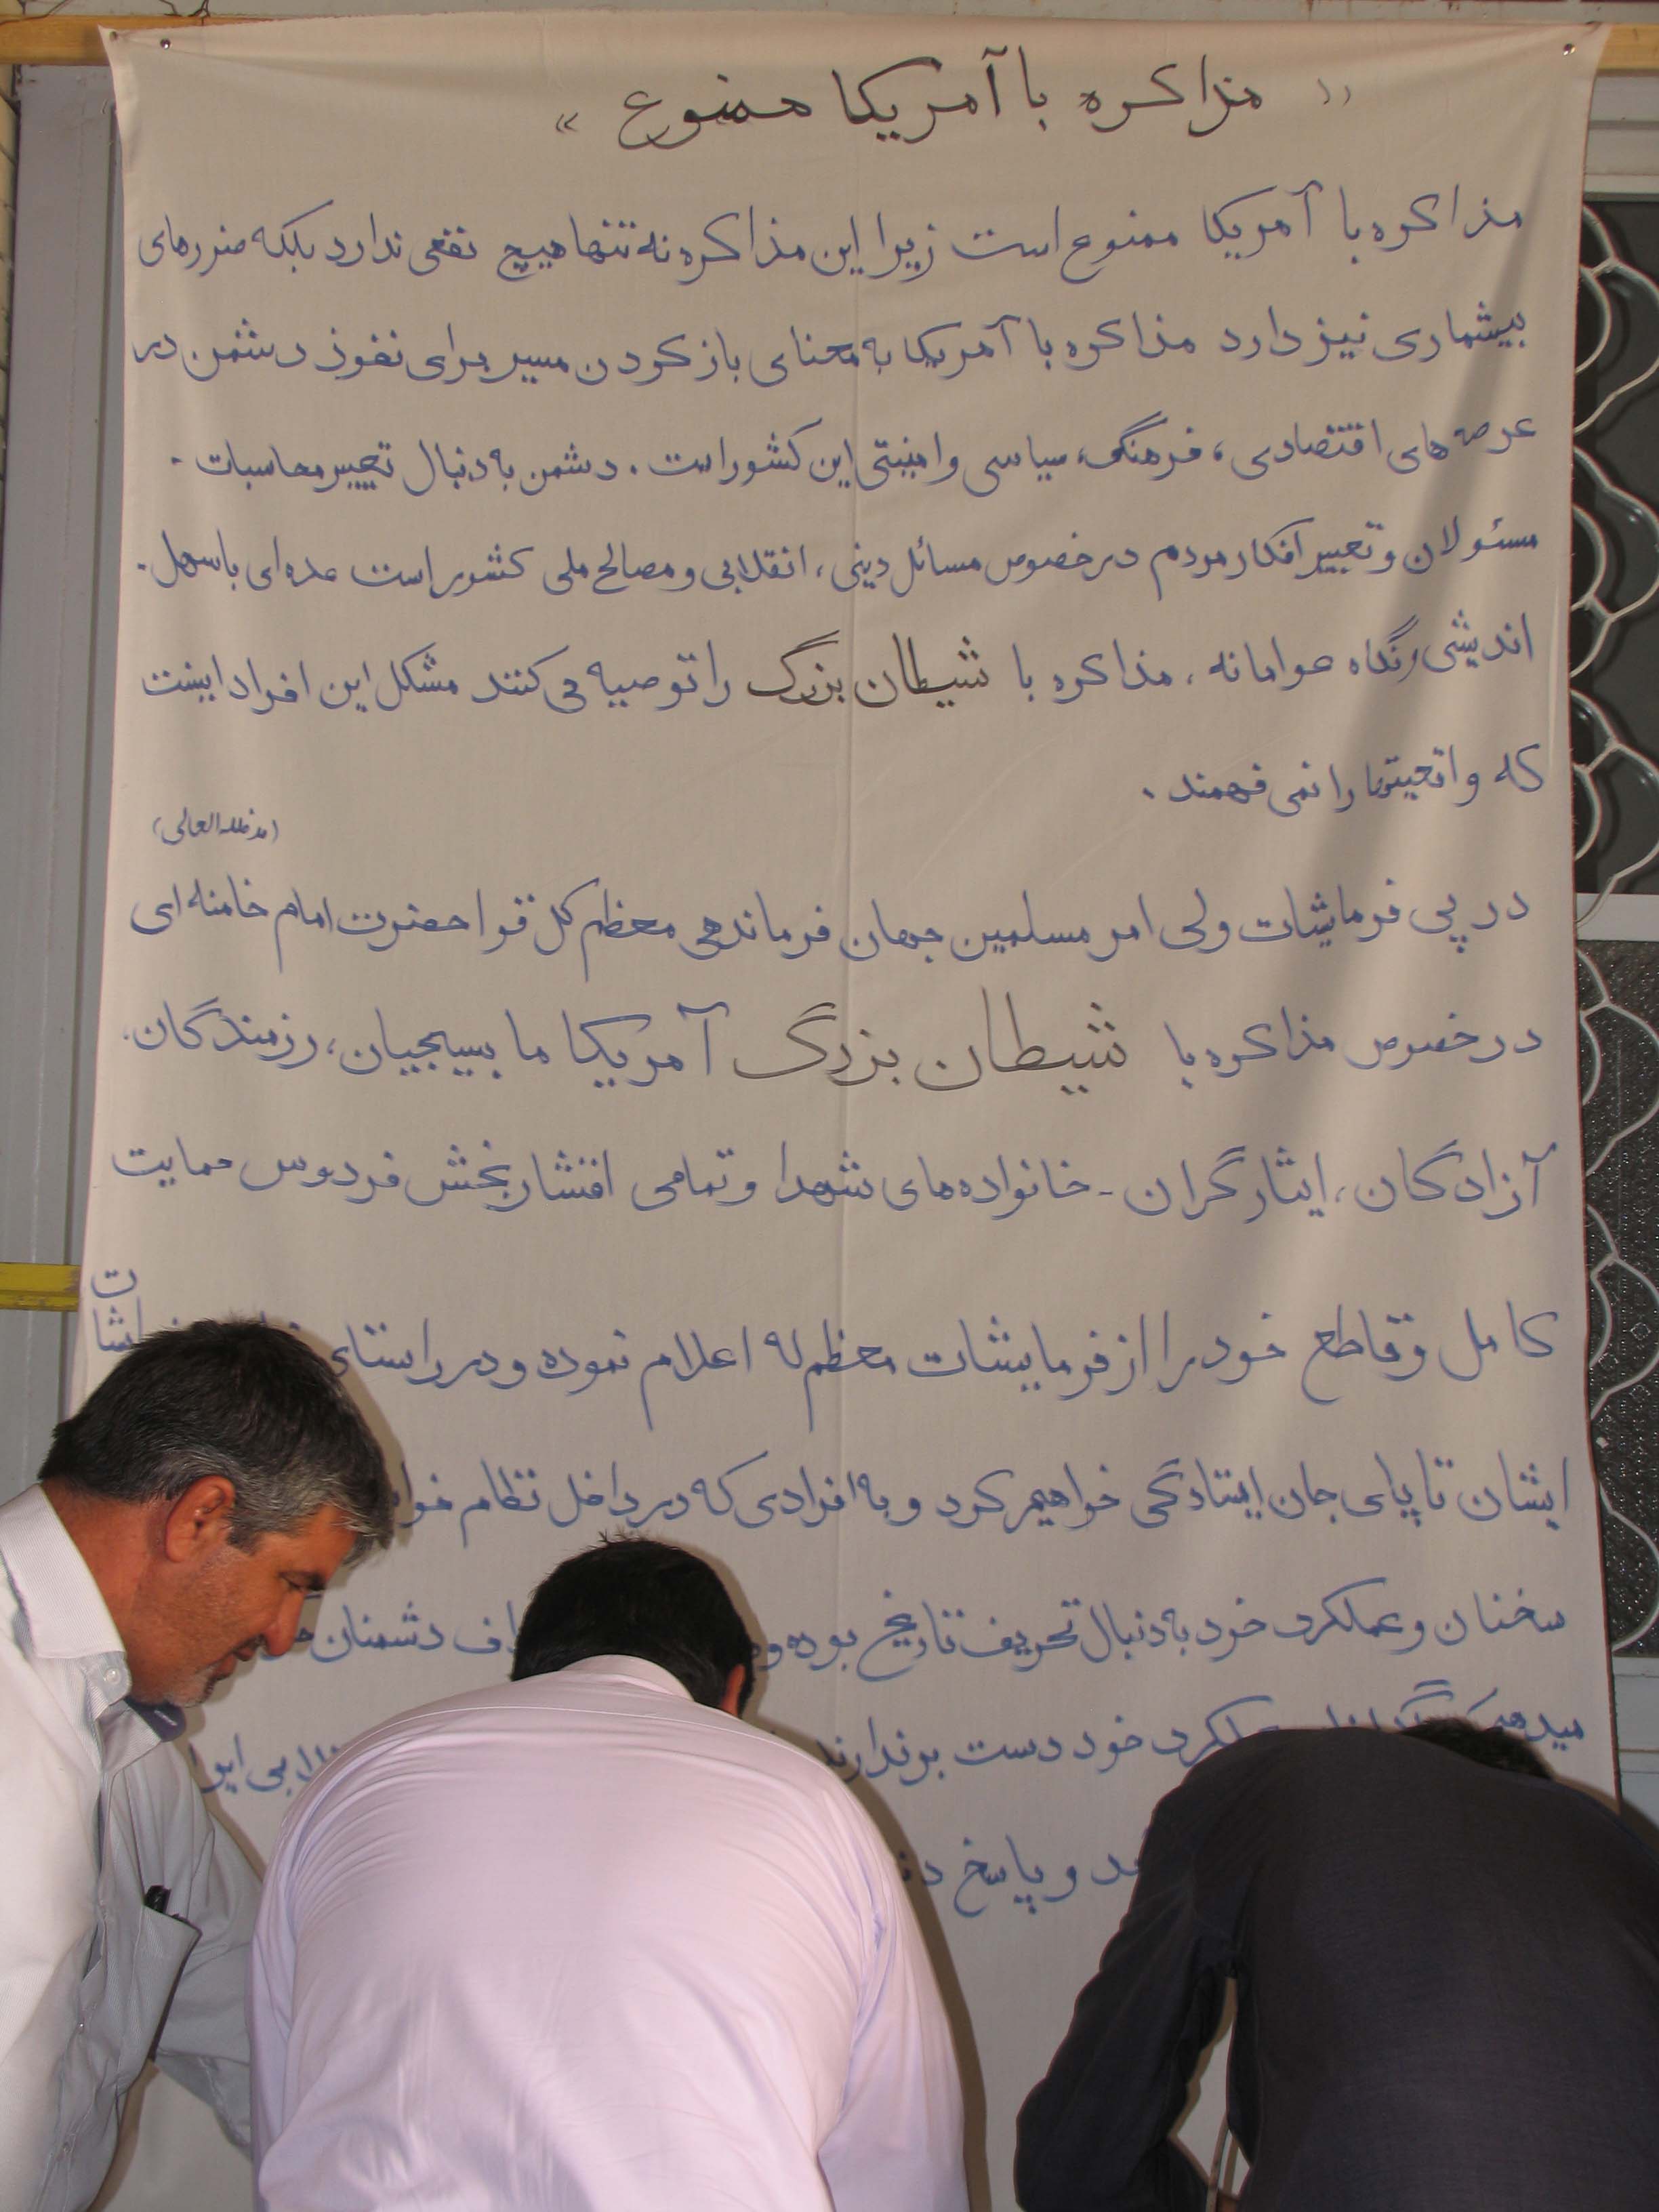 « مذاکره با آمریکا ممنوع »
مذاکره با آمریکا ممنوع است زیرا این مذاکره نه تنها هیچ نفعی ندارد بلکه ضررهای
بیشماری نیز دارد مذاکره با آمریکا به معنای باز کردن مسیر برای نفوذ دشمن در
عرصه های اقتصادی، فرهنگی، سیاسی و امنیتی این کشور است. دشمن به دنبال تغییر محاسبات
مسئولان و تغییر افکار مردم در خصوص مسائل دینی، انقلابی و مصالح ملی کشور است عده ای با سهل
اندیشی و نگاه عوامانه، مذاکره با شیطان بزرگ را توصیه می کنند مشکل این افراد اینست
که واقعیتها را نمی فهمند.
(مدظله العالی)
در پی فرمایشات ولی امر مسلمین جهان فرماندهی معظم کل قوا حضرت امام خامنه ای
در خصوص مذاکره با شیطان بزرگ آمریکا ما بسیجیان، رزمندگان،
آزادگان، ایثارگران - خانواده های شهدا و تمامی اقشار بخش فردوس حمایت
کامل و قاطع خود را از فرمایشات معظم له اعلام نموده و در راستای
ایشان تا پای جان ایستادگی خواهیم کرد و به افرادی که در داخل نظام
سخنان و عملکرد خود به دنبال تحریف تاریخ بوده و دشمنان
خود دست برندارند
و پاسخ